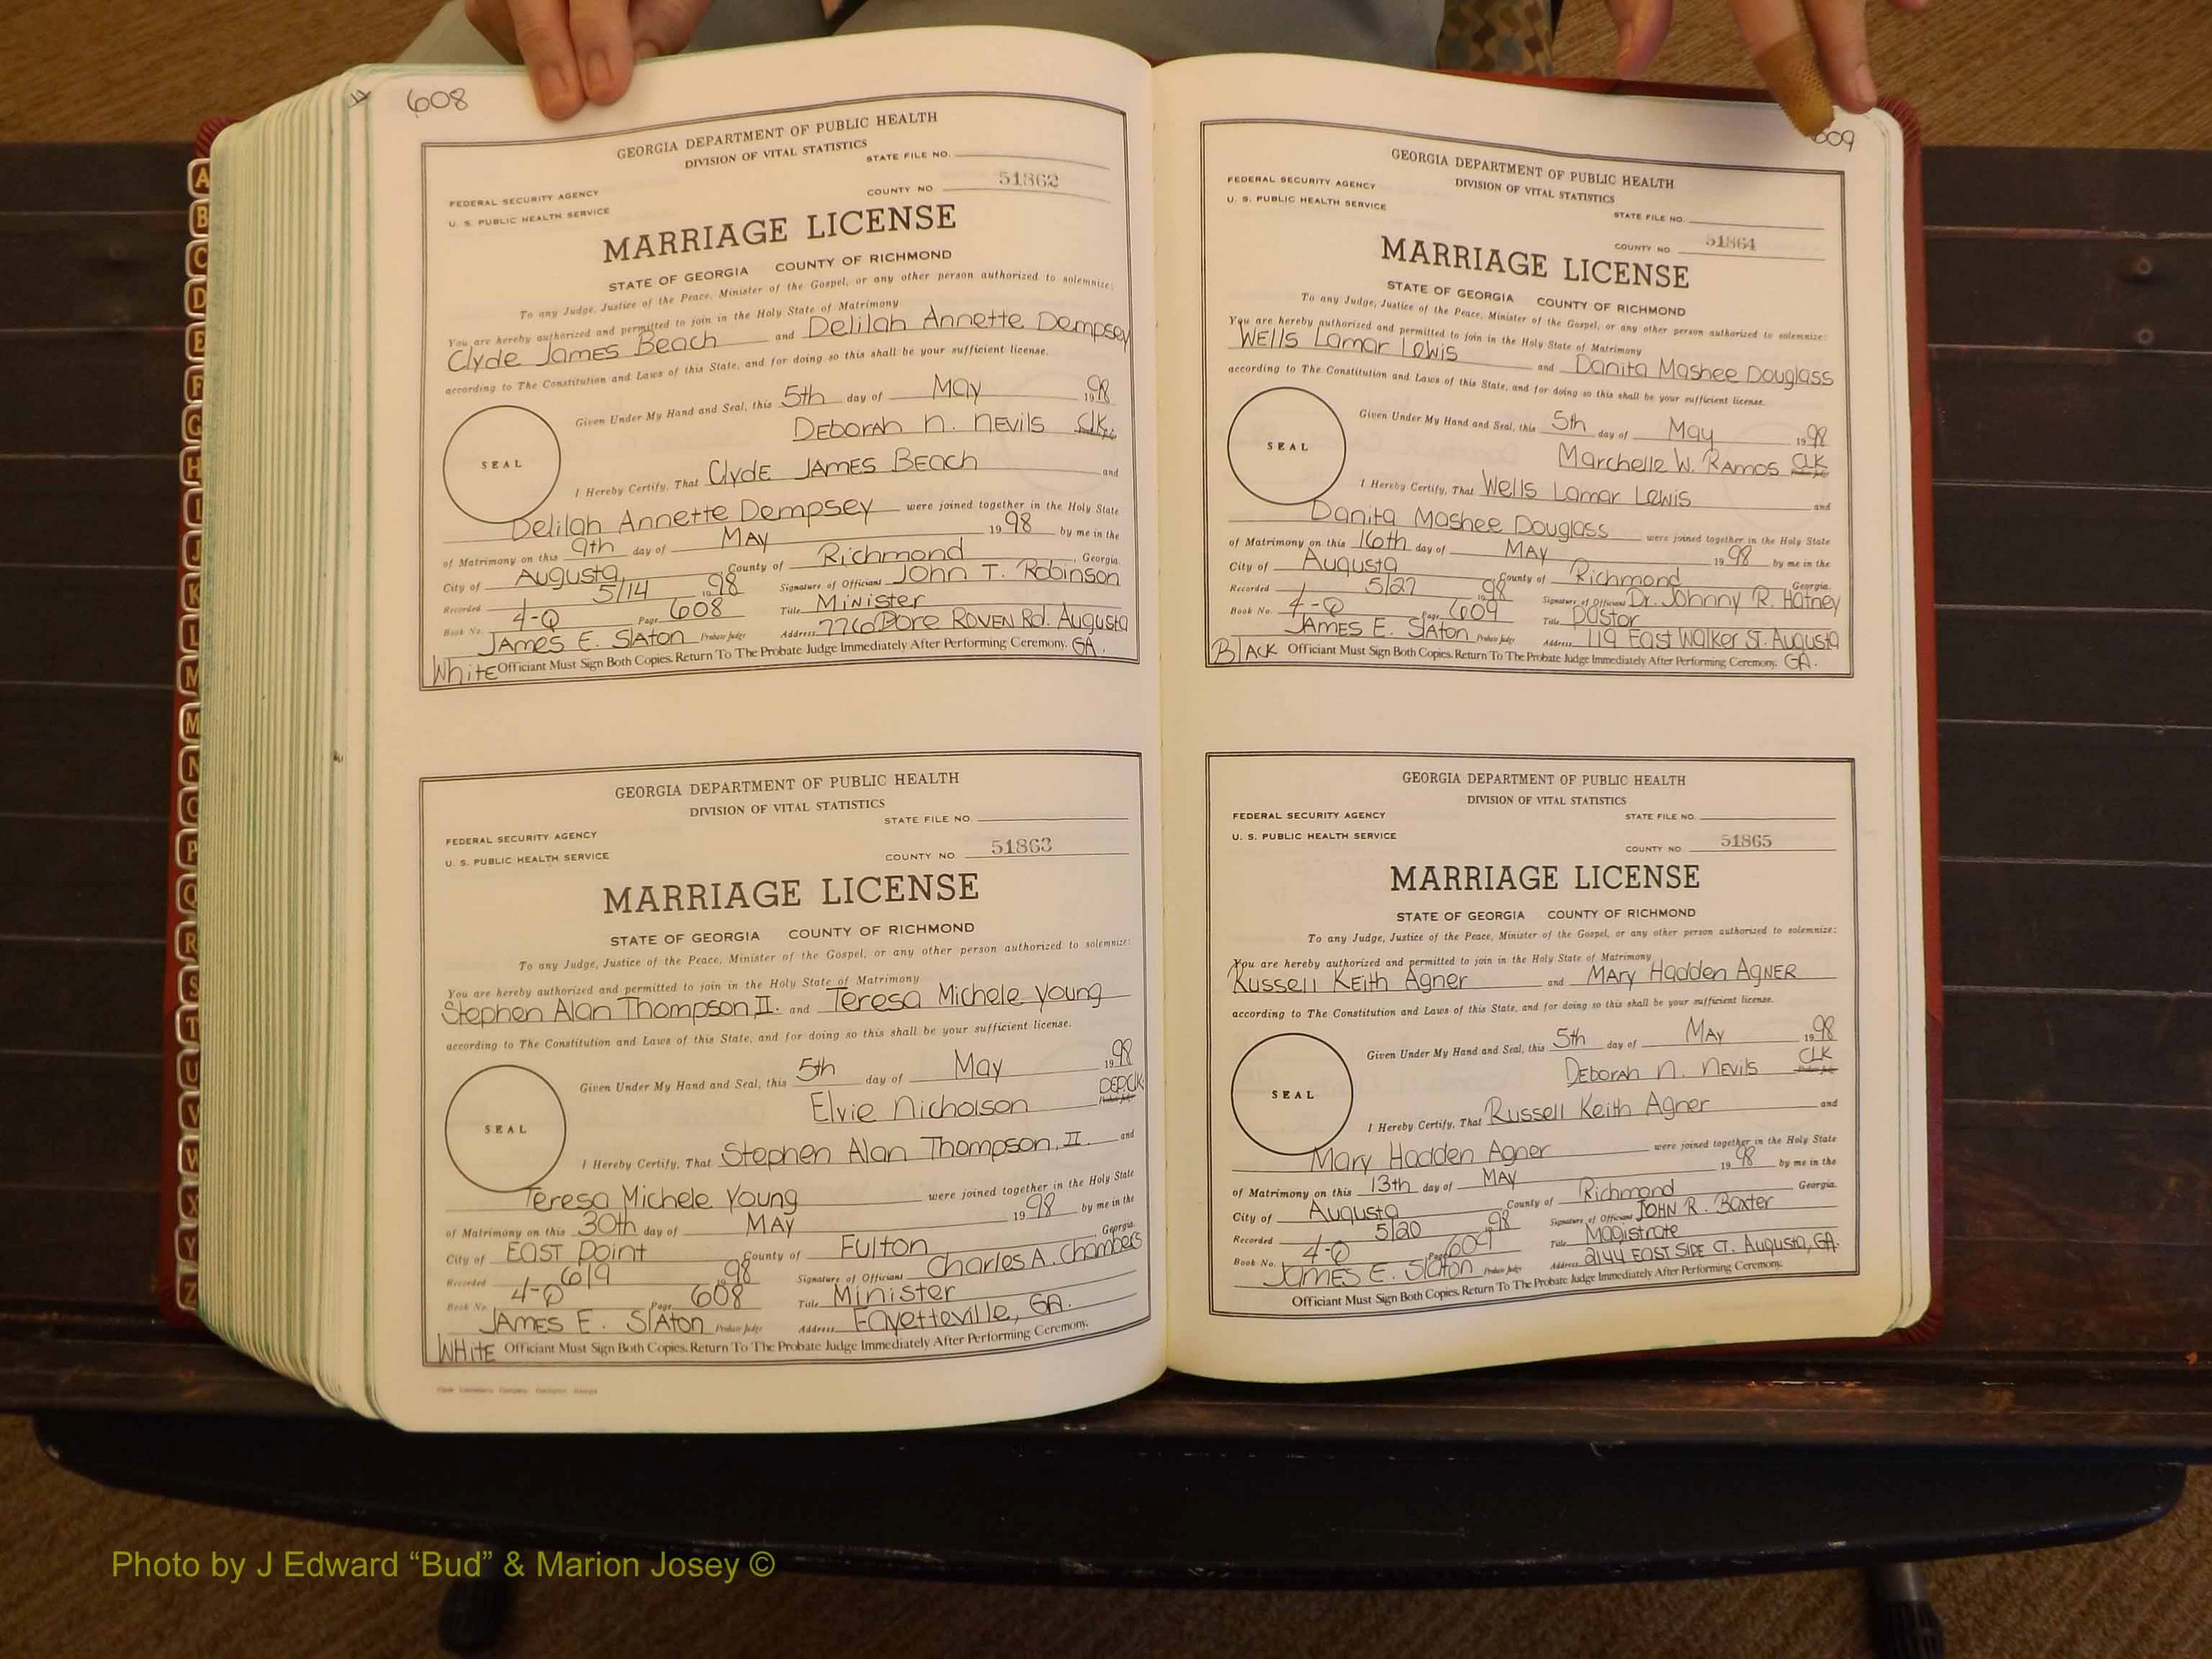 608
GEORGIA DEPARTMENT OF PUBLIC HEALTH
DIVISION OF VITAL STATISTICS
STATE FILE NO.
FEDERAL SECURITY AGENCY
COUNTY NO 51862
U. S. PUBLIC HEALTH SERVICE
MARRIAGE LICENSE
STATE OF GEORGIA COUNTY OF RICHMOND
To any Judge, Justice of the Peace, Minister of the Gospel, or any other person authorized to solemnize:
You are hereby authorized and permitted to join in the Holy State of Matrimony
Clyde James Beach and Delilah Annette Dempsey
according to The Constitution and Laws of this State, and for doing so this shall be your sufficient license.
Given Under My Hand and Seal, this 5th day of May 1998
Deborah N. Nevils Clk.
SEAL
I Hereby Certify, That Clyde James Beach and
Delilah Annette Dempsey were joined together in the Holy State
of Matrimony on this 9th day of May 1998 by me in the
City of Augusta, County of Richmond, Georgia.
Recorded 5/14 1998 Signature of Officiant John T. Robinson
Book No. 4-Q Page 608 Title Minister
James E. Slaton Probate Judge Address 776 Dore Roven Rd. Augusta
White Officiant Must Sign Both Copies. Return To The Probate Judge Immediately After Performing Ceremony. GA.
GEORGIA DEPARTMENT OF PUBLIC HEALTH
DIVISION OF VITAL STATISTICS
STATE FILE NO.
FEDERAL SECURITY AGENCY
U. S. PUBLIC HEALTH SERVICE
COUNTY NO 51863
MARRIAGE LICENSE
STATE OF GEORGIA COUNTY OF RICHMOND
To any Judge, Justice of the Peace, Minister of the Gospel, or any other person authorized to solemnize:
You are hereby authorized and permitted to join in the Holy State of Matrimony
Stephen Alan Thompson, II. and Teresa Michele Young
according to The Constitution and Laws of this State, and for doing so this shall be your sufficient license.
Given Under My Hand and Seal, this 5th day of May 1998
Elvie Nicholson Dep. Clk
SEAL
I Hereby Certify, That Stephen Alan Thompson, II and
Teresa Michele Young were joined together in the Holy State
of Matrimony on this 30th day of May 1998 by me in the
City of East Point County of Fulton, Georgia.
Recorded 6/9 1998 Signature of Officiant Charles A. Chambers
Book No. 4-Q Page 608 Title Minister
James E. Slaton Probate Judge Address Fayetteville, GA.
White Officiant Must Sign Both Copies. Return To The Probate Judge Immediately After Performing Ceremony.
609
GEORGIA DEPARTMENT OF PUBLIC HEALTH
DIVISION OF VITAL STATISTICS
FEDERAL SECURITY AGENCY
U. S. PUBLIC HEALTH SERVICE
STATE FILE NO.
COUNTY NO 51864
MARRIAGE LICENSE
STATE OF GEORGIA COUNTY OF RICHMOND
To any Judge, Justice of the Peace, Minister of the Gospel, or any other person authorized to solemnize:
You are hereby authorized and permitted to join in the Holy State of Matrimony
Wells Lamar Lewis and Danita Mashee Douglass
according to The Constitution and Laws of this State, and for doing so this shall be your sufficient license.
Given Under My Hand and Seal, this 5th day of May 1998
Marchelle W. Ramos CLK
SEAL
I Hereby Certify, That Wells Lamar Lewis and
Danita Mashee Douglass were joined together in the Holy State
of Matrimony on this 16th day of May 1998 by me in the
City of Augusta County of Richmond Georgia.
Recorded 5/27 1998 Signature of Officiant Dr. Johnny R. Hatney
Book No. 4-Q Page 609 Title Pastor
James E. Slaton Probate Judge Address 119 East Walker St. Augusta
Black Officiant Must Sign Both Copies. Return To The Probate Judge Immediately After Performing Ceremony. GA.
GEORGIA DEPARTMENT OF PUBLIC HEALTH
DIVISION OF VITAL STATISTICS
FEDERAL SECURITY AGENCY STATE FILE NO.
U. S. PUBLIC HEALTH SERVICE
COUNTY NO. 51865
MARRIAGE LICENSE
STATE OF GEORGIA COUNTY OF RICHMOND
To any Judge, Justice of the Peace, Minister of the Gospel, or any other person authorized to solemnize:
You are hereby authorized and permitted to join in the Holy State of Matrimony
Russell Keith Agner and Mary Hadden Agner
according to The Constitution and Laws of this State, and for doing so this shall be your sufficient license.
Given Under My Hand and Seal, this 5th day of May 1998
Deborah N. Nevils CLK
SEAL
I Hereby Certify, That Russell Keith Agner and
Mary Hadden Agner were joined together in the Holy State
of Matrimony on this 13th day of May 1998 by me in the
City of Augusta County of Richmond Georgia.
Recorded 5/20 1998 Signature of Officiant John R. Baxter
Book No. 4-Q Page 609 Title Magistrate
James E. Slaton Probate Judge Address 2144 East Side Ct. Augusta, GA.
Officiant Must Sign Both Copies. Return To The Probate Judge Immediately After Performing Ceremony.
A
B
C
D
E
F
G
H
I
J
K
L
M
M
N
O
P
Q
R
S
T
U
V
W
X
Y
Z
Photo by J Edward “Bud” & Marion Josey ©